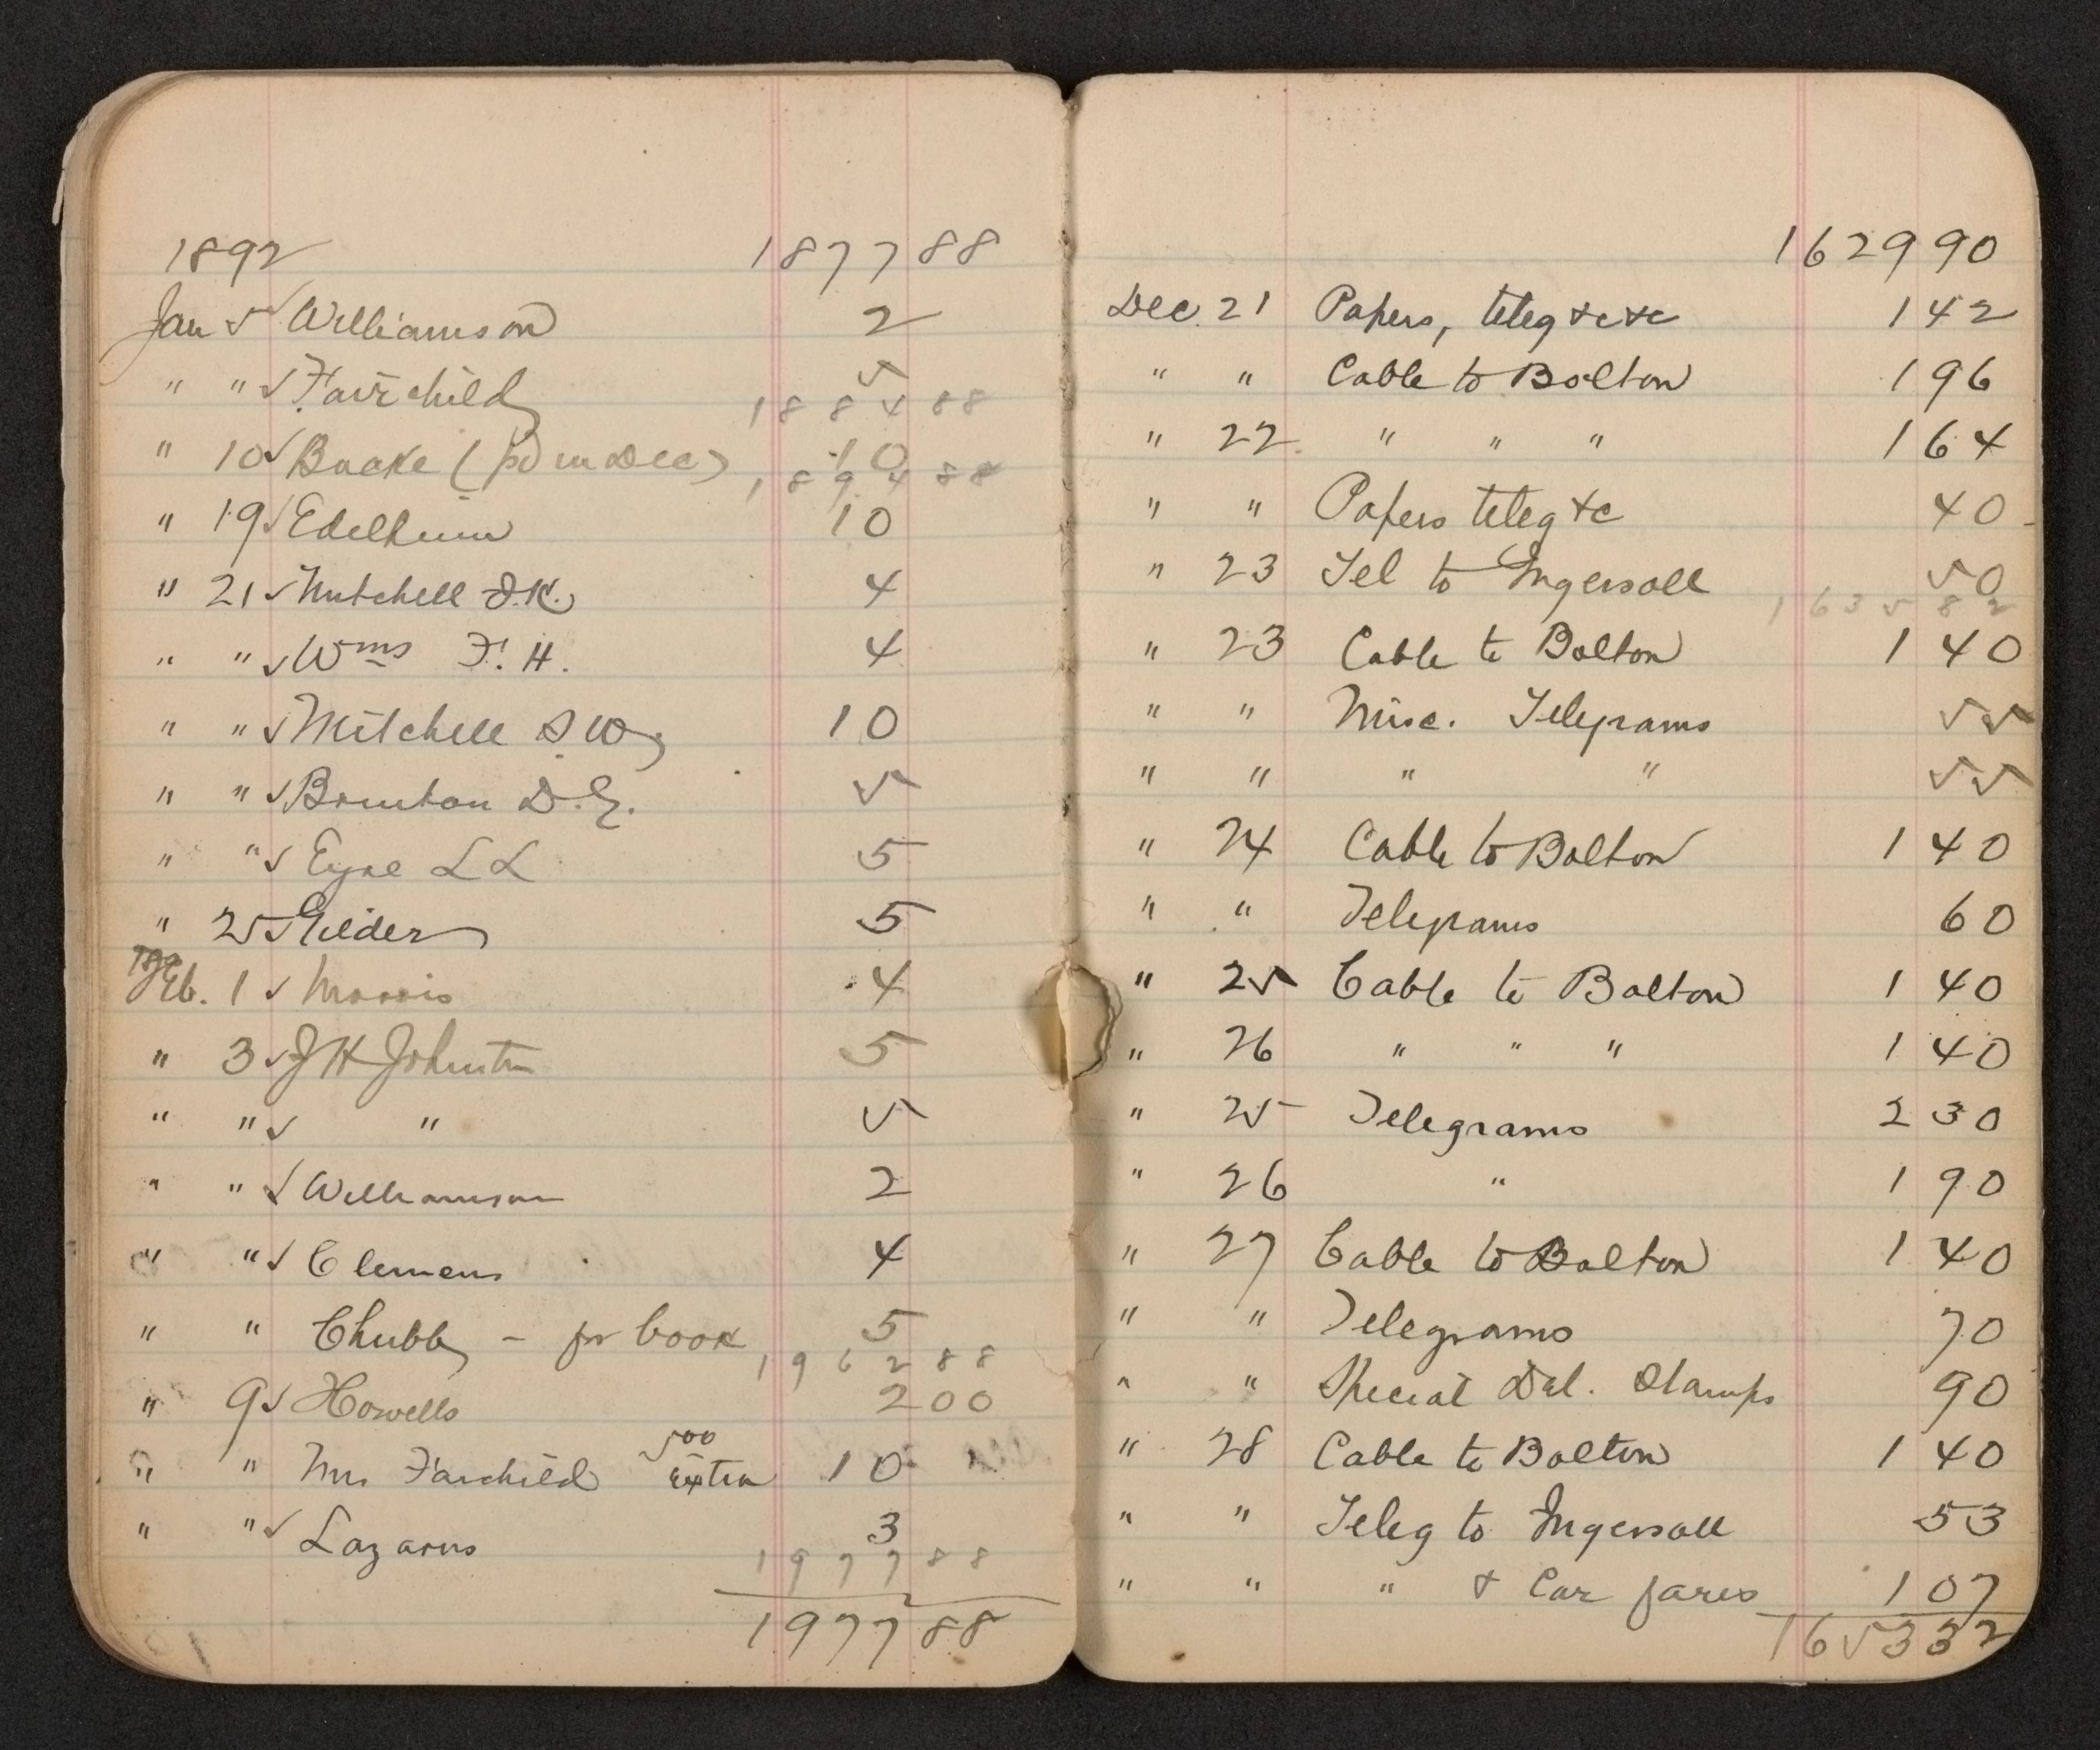 1892 187788
Jan 5 √ Williamson 2
" " √ Fairchild 5
188488
" 10 √ Bucke (pd in Dec) 10
189488
" 19 √ Edelheim 10
" 21 √ Mitchell J.K. 4
" " √ Wms F. H. 4
" " √ Mitchell S W 10
" " √ Brinton D. G. 5
" " √ Eyre L L 5
" 25 √ Gilder 5
Feb. 1 √ Morris 4
" 3 √ J H Johnston 5
" " √ " 5
" " √ Williamson 2
" " √ Clemens 4
" " Chubb - for book 5
196288
" 9 √ Howells 200
" " Mrs Fairchild 500 extra 10
" " √ Lazarus 3
197788
197788
162990
Dec. 21 Papers, teleg &c &c 142
" " Cable to Bolton 196
" 22 " " " 164
" " Papers teleg &c 40
" 23 Tel to Ingersoll 50
163582
" 23 Cable to Bolton 140
" " Misc. Telegrams 55
" " " " 55
" 24 Cable to Bolton 140
" " Telegrams 60
" 25 Cable to Bolton 140
" 26 " " " 140
" 25 Telegrams 230
" 26 " 190
" 27 Cable to Bolton 140
" " Telegrams 70
" " Special Del. Stamps 90
" 28 Cable to Bolton 140
" " Teleg to Ingersoll 53
" " " & Car fares 107
165332